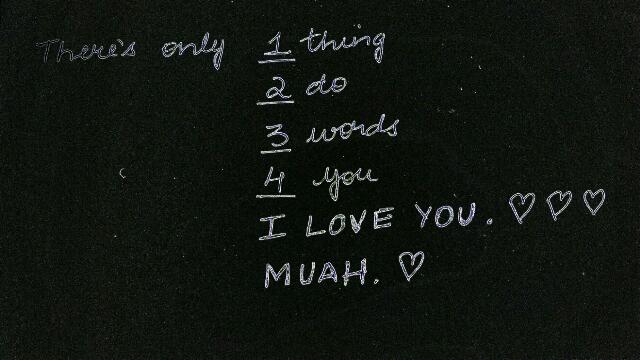 There's only 1 thing
2 do
3 words
4 you
I LOVE YOU. ♡ ♡ ♡
MUAH. ♡